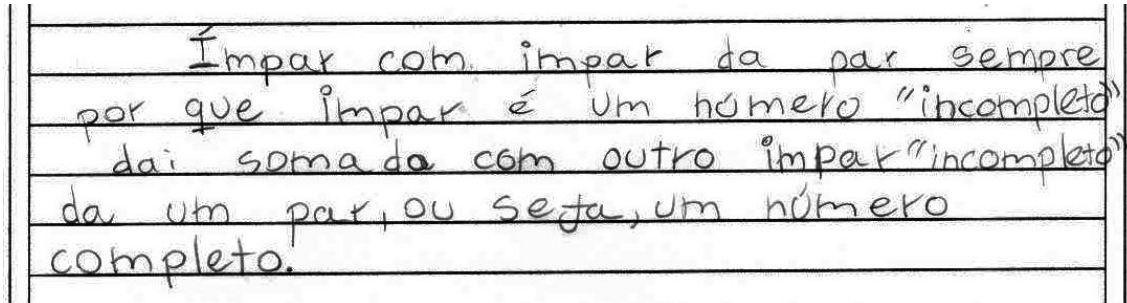 Ímpar com impar da par sempre
por que impar é um número "incompleto"
dai somada com outro impar "incompleto"
da um par, ou seja, um número
completo.